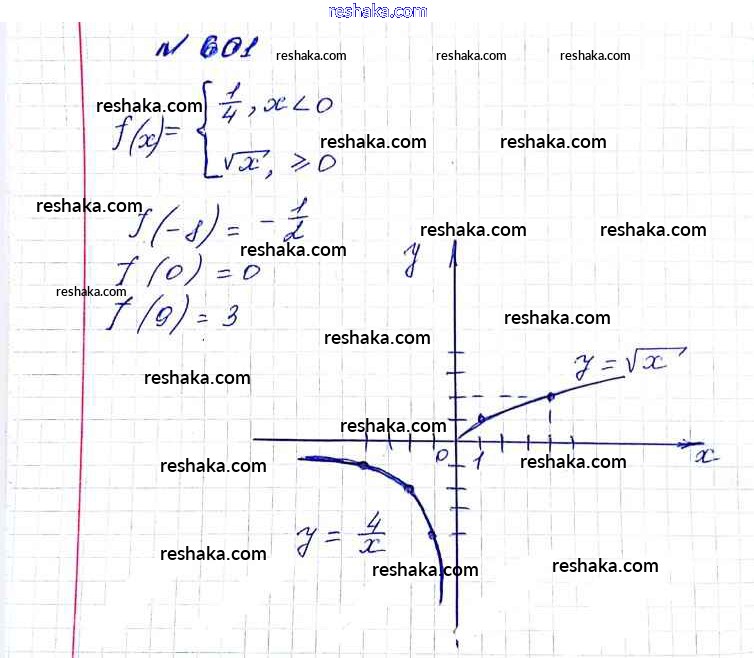 reshaka.com
№ 601
reshaka.com reshaka.com reshaka.com
reshaka.com
f(x) = { 1/4, x < 0
reshaka.com reshaka.com
√x, ≥ 0
reshaka.com
f(-8) = - 1/2
reshaka.com reshaka.com
reshaka.com
y
f(0) = 0
reshaka.com
f(9) = 3
reshaka.com
reshaka.com
y = √x
reshaka.com
reshaka.com
0 1 x
reshaka.com reshaka.com
y = 4/x
reshaka.com
reshaka.com reshaka.com